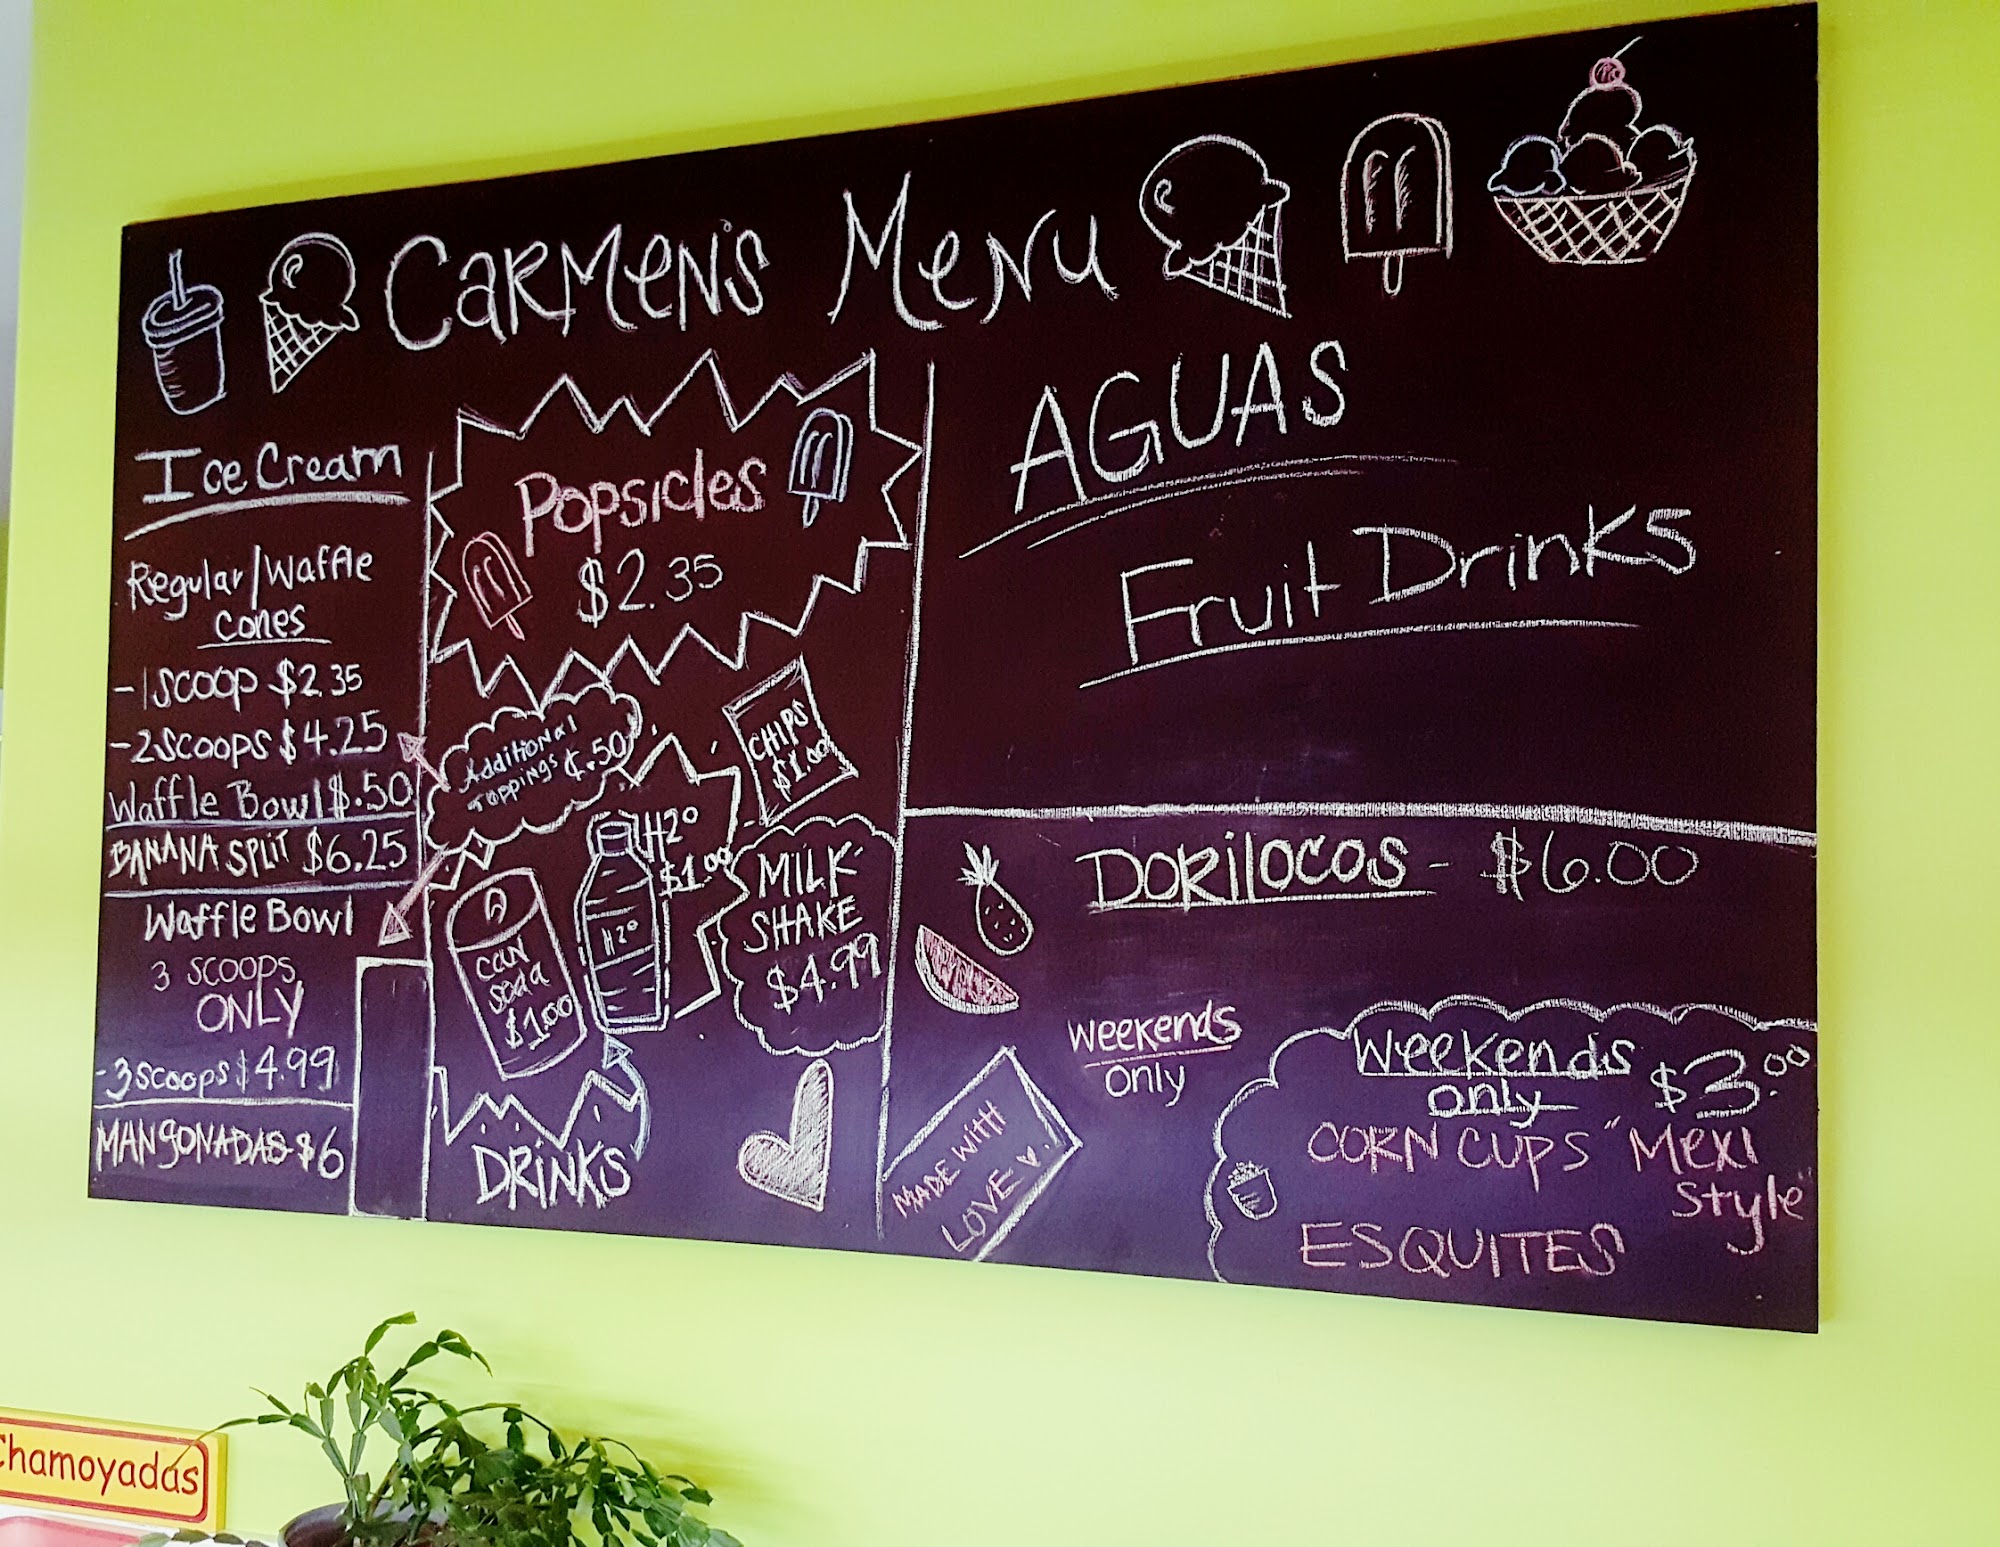 CARMEN'S MENU
Ice Cream
Regular/Waffle
cones
-1 SCOOP $2.35
-2 SCOOPS $4.25
Waffle Bowl $.50
BANANA SPLIT $6.25
Waffle Bowl
3 SCOOPS
ONLY
-3 SCOOPS $4.99
MANGONADAS $6
Popsicles
$2.35
Additional
Toppings ¢.50
CHIPS
$1.00
H2O
$1.00
H2O
can
soda
$1.00
MILK
SHAKE
$4.99
DRINKS
AGUAS
Fruit Drinks
DORILOCOS - $6.00
Weekends
only
MADE WITH
LOVE
Weekends
only
$3.00
CORN CUPS "Mexi
Style"
ESQUITES
Chamoyadas